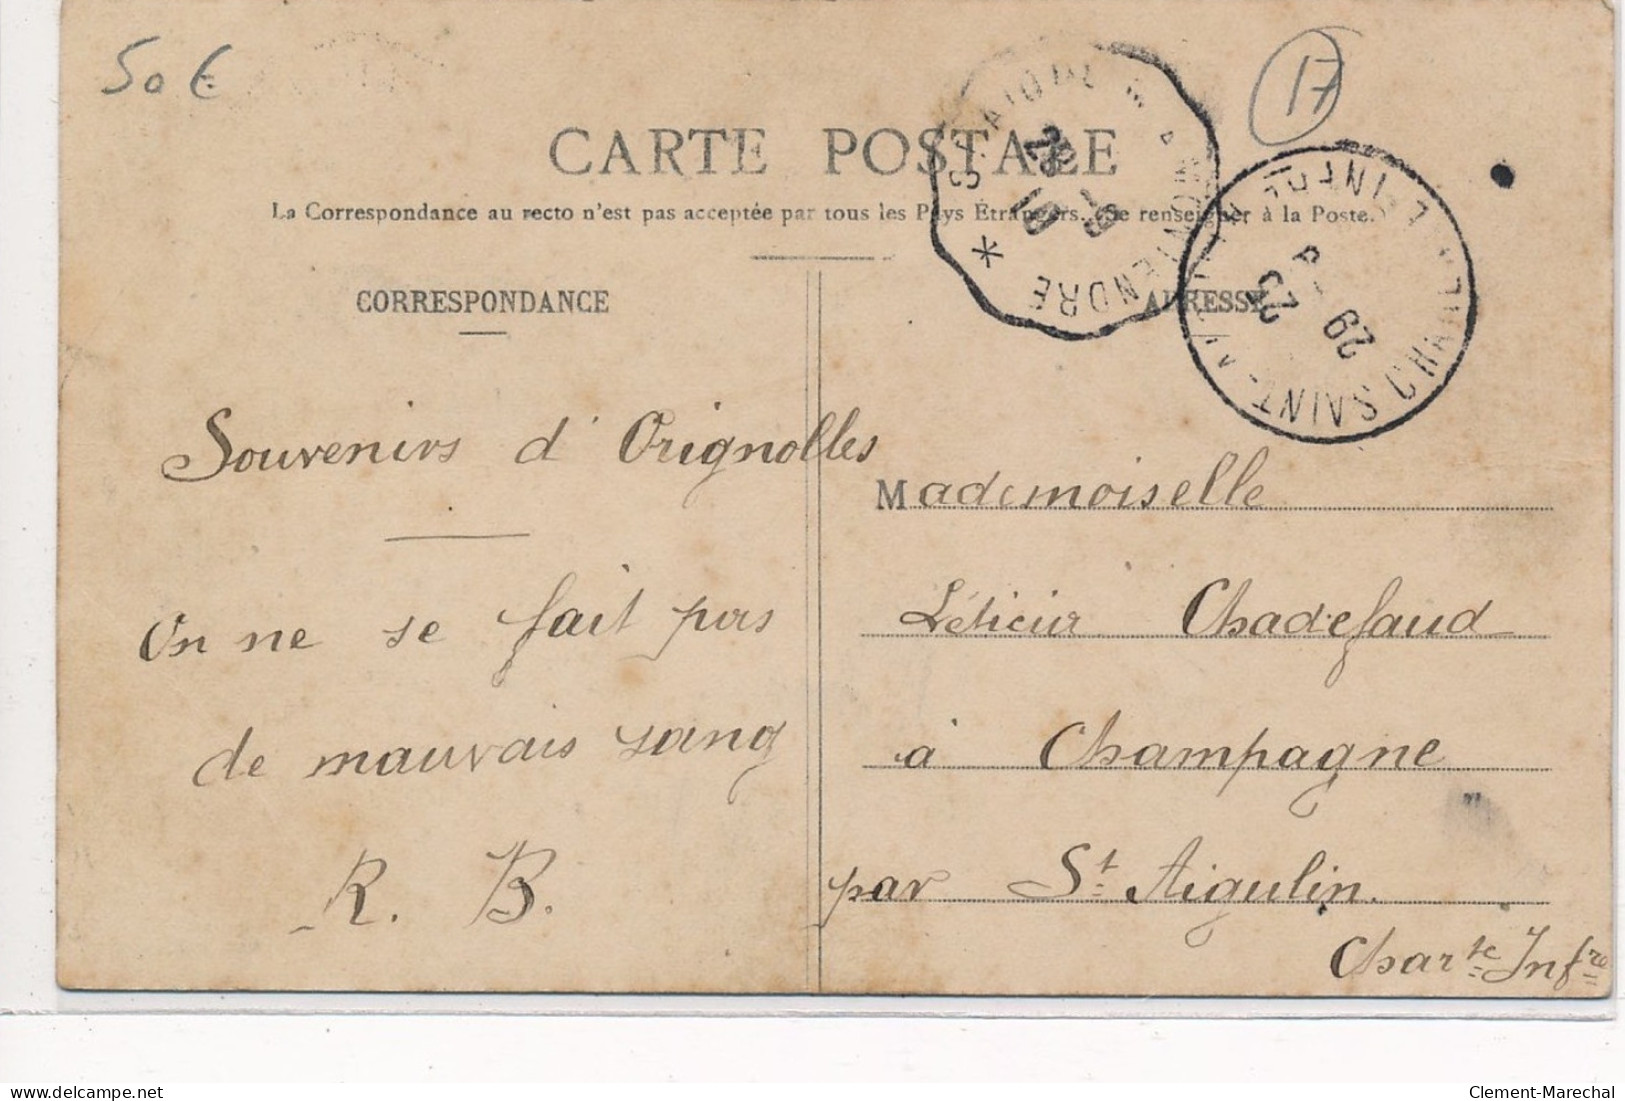 50 €
17
CARTE POSTALE
La Correspondance au recto n'est pas acceptée par tous les Pays Étrangers. (Se renseigner à la Poste.
CORRESPONDANCE
ADRESSE
Souvenirs d'Orignolles
On ne se fait pas
de mauvais sang
R. B.
Mademoiselle
Léticia Chadefaud
à Champagne
par St Aigulin.
Charte Infre
29
23
Clement-Marechal